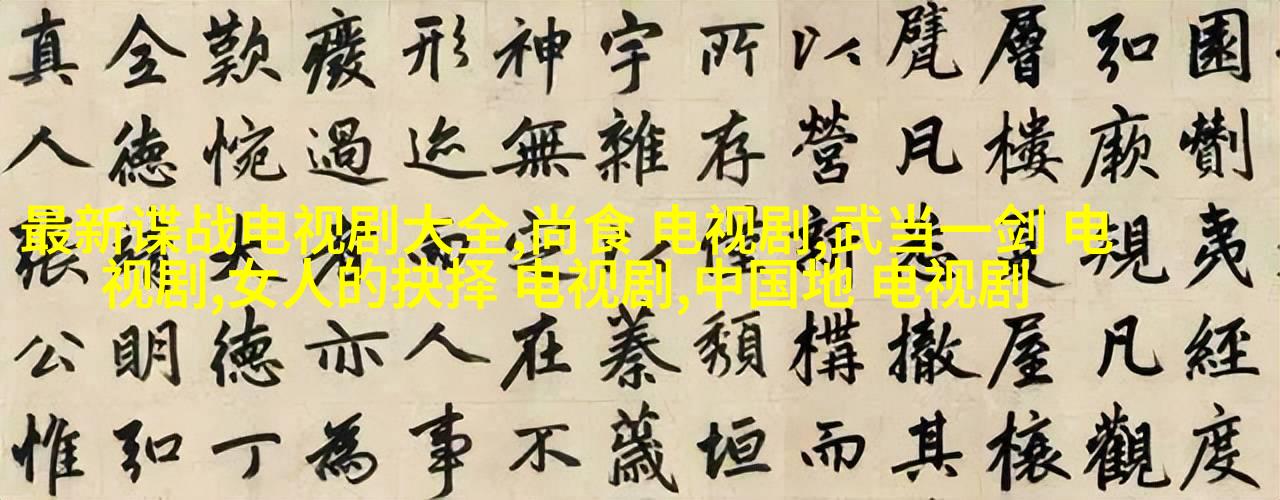 最新谍战电视剧大全,尚食 电视剧,武当一剑 电
视剧,女人的抉择 电视剧,中国地 电视剧
園劗夷經度
弘厥規凡觀
層樓屋榱
甓凡撤其
以營新構而
所存頹垣
宇雜以蓁薉
神無在不
形迹而人事
癈過亦為
歎惋大德丁
全德明弘
真人張公惟